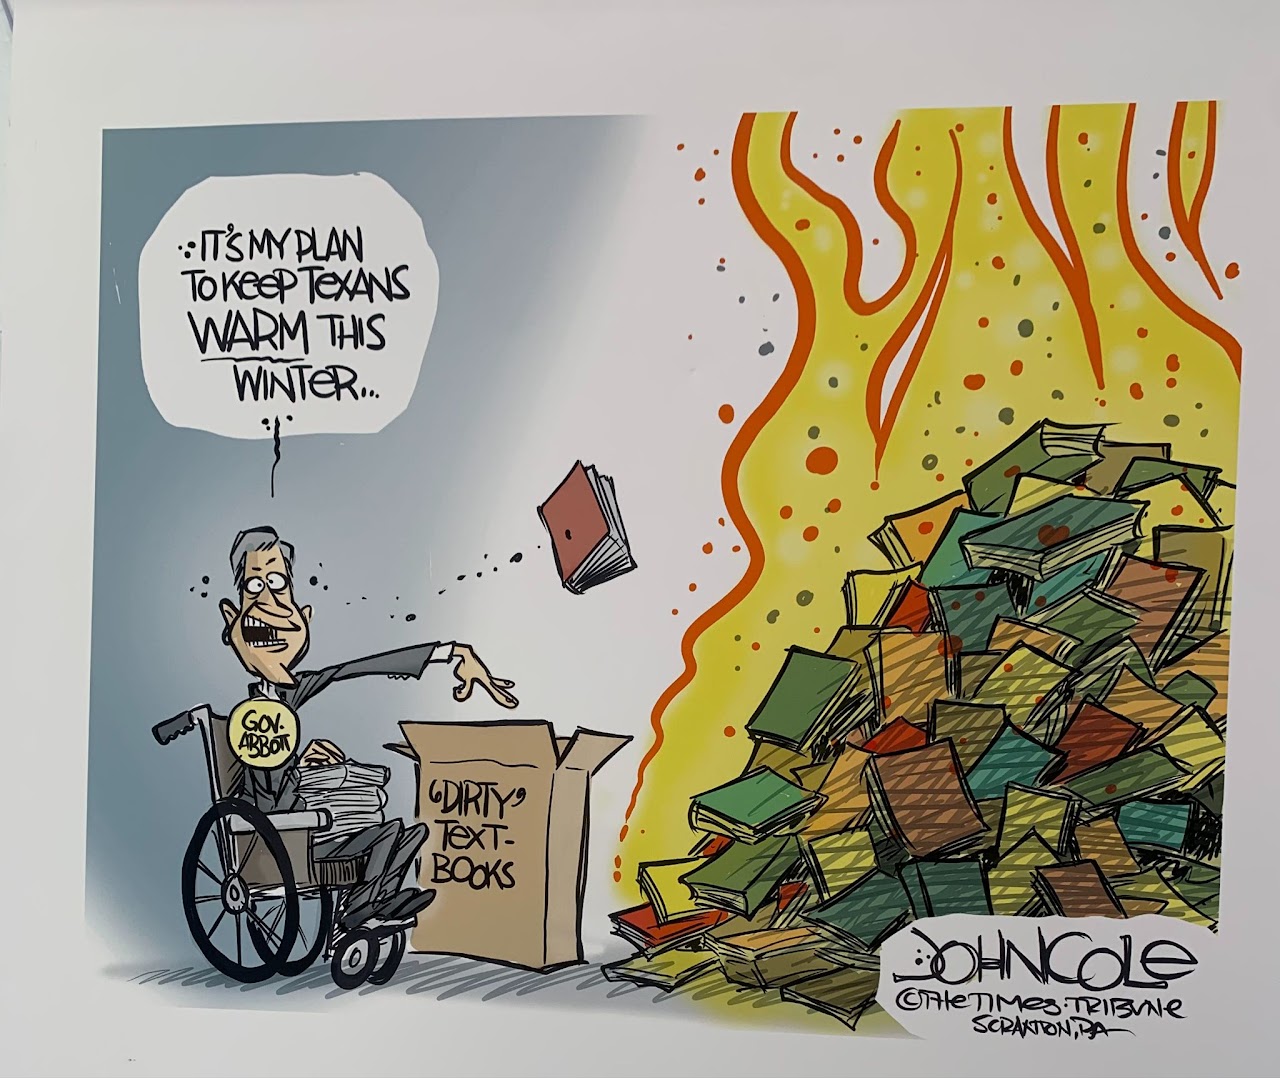 IT'S MY PLAN
TO KEEP TEXANS
WARM THIS
WINTER...
GOV.
ABBOTT
'DIRTY'
TEXT-
BOOKS
JOHN COLE
©THE TIMES-TRIBUNE
SCRANTON, PA